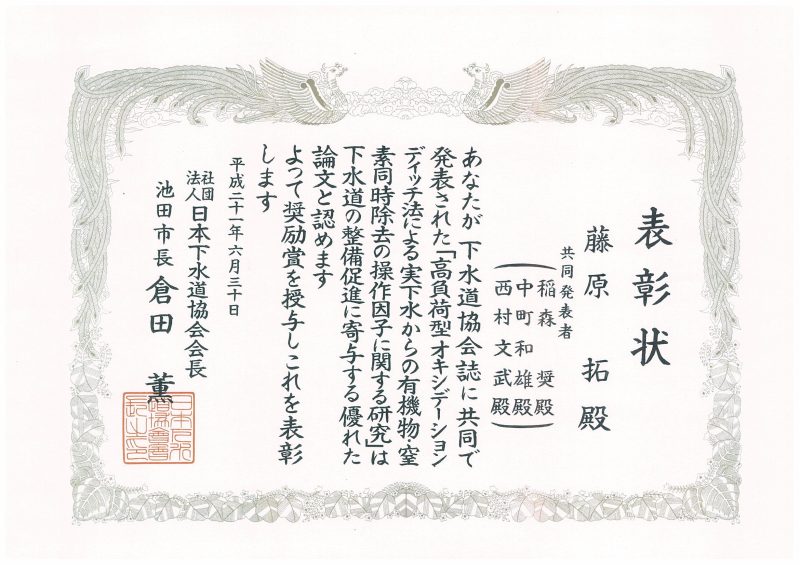 表彰状
藤原 拓殿
共同発表者
稲森 奨殿
中町和雄殿
西村文武殿
あなたが下水道協会誌に共同で
発表された「高負荷型オキシデーション
ディッチ法による実下水からの有機物・窒
素同時除去の操作因子に関する研究」は
下水道の整備促進に寄与する優れた
論文と認めます
よって奨励賞を授与しこれを表彰
します
平成二十一年六月三十日
社団法人日本下水道協会会長
池田市長 倉田 薫